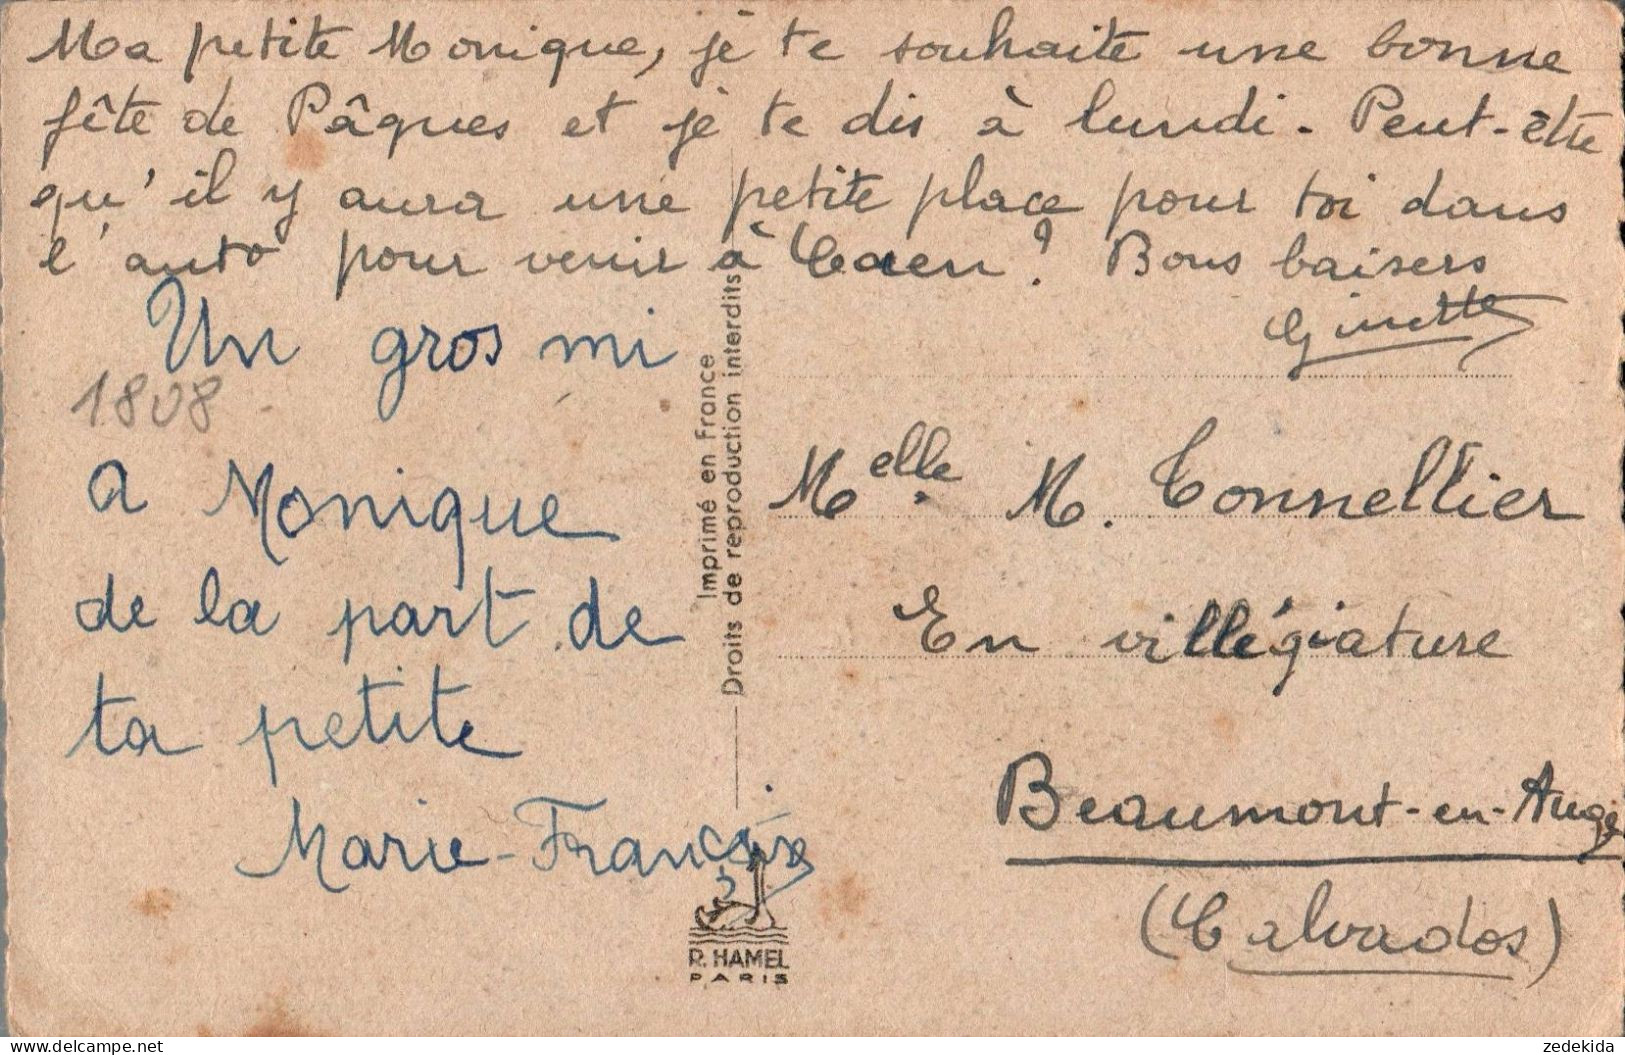 Ma petite Monique, je te souhaite une bonne
fête de Pâques et je te dis à lundi. Peut-être
qu'il y aura une petite place pour toi dans
l'auto pour venir à Caen? Bons baisers
Ginette
Un gros mi
1808
a Monique
de la part de
ta petite
Marie-Françoise
Imprimé en France
Droits de reproduction interdits
R. HAMEL
PARIS
Melle M. Tonnellier
En villégiature
Beaumont-en-Auge
(Calvados)
zedekida